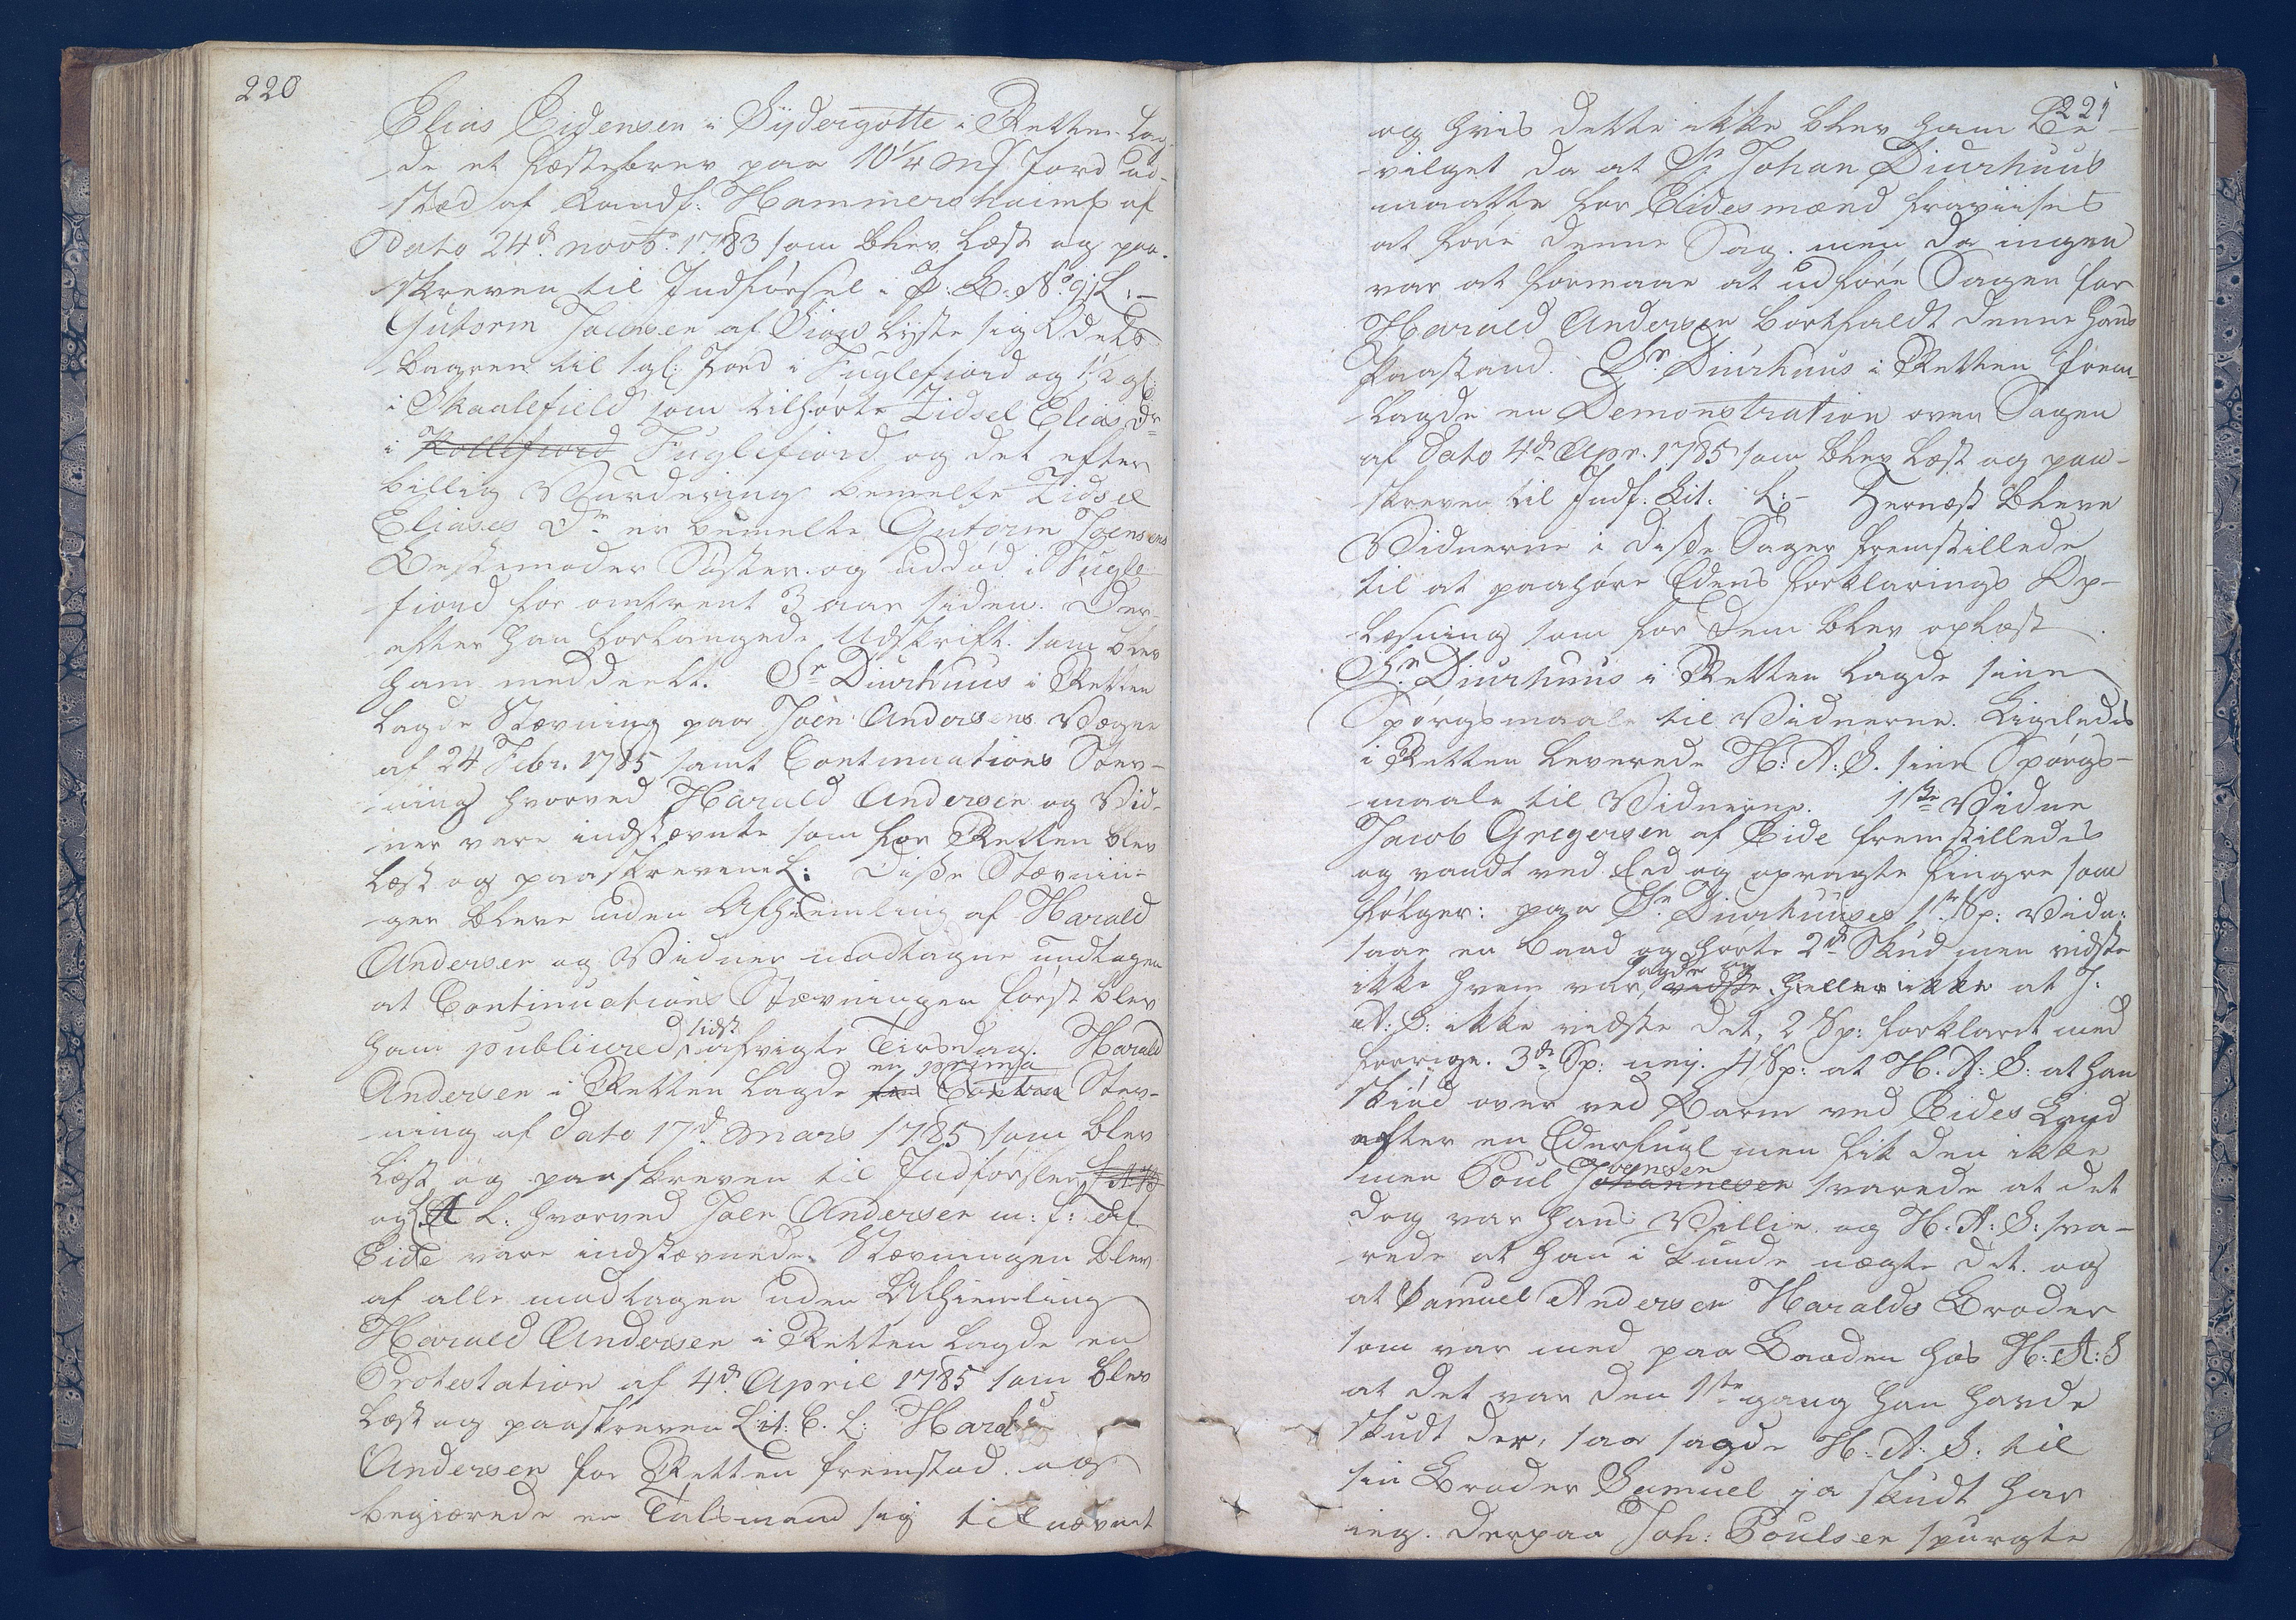 220
Elias Eidensen i Sydergøtte i Retten lag-
de et Fæstebrev paa 10 1/4 mk Jord ud-
stæd af Landf: Hammershaimb af
Dato 24de novbr. 1783 som blev læst og paa-
skreven til Indførsel i P: B: No 9j L: -
Gutorm Joensen af Siov lyste sig Odels
baaren til 1 gl: Jord i Fuglefiord og 1 1/2 gl:
i Skaalefield som tilhørte Zidsel Elias Dr
i Kollefiord Fuglefiord og det efter
billig Vurdering bemelte Zidsel
Eliases Dr er bemelte Gutorm Joensens
Bestemoder Søster og uddød i Fugle-
fiord for omtrent 3 aar siden. Der-
efter han forlangede Udskrift som blev
ham meddeelt. Sr Diurhuus i Retten
lagde Stævning paa Joen Andersens Vegne
af 24 Febr. 1785 samt Continuations Stev-
ning hvorved Harald Andersen og Vid-
ner vare indstævnte som for Retten blev
læst og paaskrevene L: Disse Stævnin-
ger bleve uden Afhiemling af Harald
Andersen og Vidner modtagne undtagen
at Continuations Stævningen først blev
ham publiceed sidst afvigte Tirsdag. Harald
Andersen i Retten lagde en prima Contra Stev-
ning af dato 17de Mars 1785 som blev
læst og paaskreven til Indførsler
og L: hvorved Joen Andersen m: f: af
Eide vare indstævnede. Stævningen blev
af alle modtagen uden Afhiemling
Harald Andersen i Retten lagde en
Protestation af 4de April 1785 som blev
læst og paaskreven Lit: C. L: Harald
Andersen for Retten fremstod og
begiærede en Talsmand sig tilnævnt
221
og hvis dette ikke blev ham Be-
vilget da at Sr Johan Diurhuus
maatte for Eidesmænd fraviises
at føre denne Sag. men da ingen
var at formaae at udføre Sagen for
Harald Andersen bortfaldt denne hans
Paastand. Sr. Diurhuus i Retten frem-
lagde en Demonstration over Sagen
af Dato 4de Apr. 1785 som blev læst og paa-
skreven til Indf: Lit: L: - Hernæst bleve
Vidnerne i disse Sager fremstillede
til at paahøre Edens Forklarings Op-
læsning som for dem blev oplæst.
Sr. Diurhuus i Retten lagde sine
Spørgsmaale til Vidnerne. Ligeledes
i Retten leverede H: A: S. sine Spørgs-
maale til Vidnerne. 1ste Vidne
Jacob Gregersen af Eide fremstilledes
og vandt ved Eed og opragte Fingre som
følger: paa Sr. Diurhuuses 1ste Sp: Vidn:
saae en Baad og hørte 2de Skud men vidste
ikke hvem var, sagde og vidste heller ikke at J:
A: S: ikke vidste det, 2 Sp: forklaret med
forrige. 3de Sp: nej. 4 Sp: at H. A: S: at han
skiød over ved Barm ved Eides Land
efter en Ederfugl men fik den ikke
men Poul Joensen Johannesen svarede at det
dog var hans Villie og H. A: S: sva-
rede at han i kunde nægte det. og
at Samuel Andersen Haralds Broder
som var med paa Baaden hos H: A: S
at det var den 1ste gang han havde
skudt der, saa sagde H. A. S: til
sin Broder Samuel ja skudt har
ieg. derpaa Joh: Poulsen spurgte